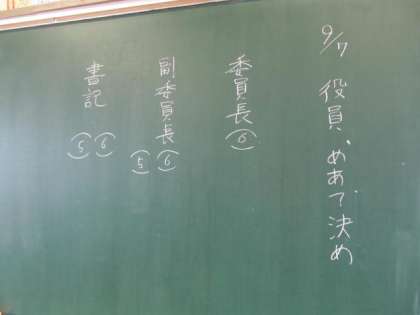 9/7 役員、めあて決め
委員長(6)
副委員長(6)
(5)
書記(6)
(5)